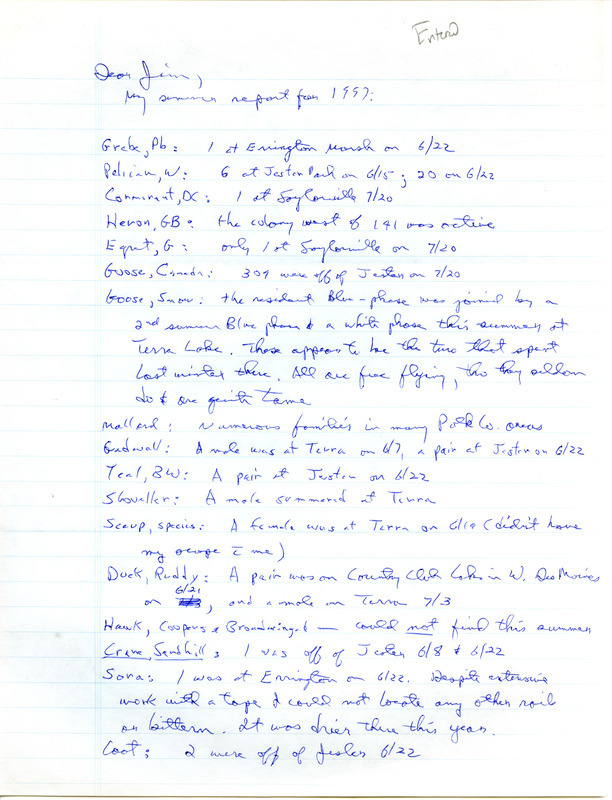 Entered
Dear Jim,
My summer report for 1997:
Grebe, Pb: 1 at Errington Marsh on 6/22
Pelican, W: 6 at Jester Park on 6/15; 20 on 6/22
Cormorant, DC: 1 at Saylorville 7/20
Heron, GB: the colony west of 141 was active
Egret, G: only 1 at Saylorville on 7/20
Goose, Canada: 309 were off of Jester on 7/20
Goose, Snow: the resident Blue-phase was joined by a
2nd summer Blue phase & a white phase this summer at
Terra Lake. These appear to be the two that spent
last winter there. All are free flying, tho they seldom
do & are quite tame
Mallard: Numerous families in many Polk Co. areas
Gadwall: A male was at Terra on 6/7, a pair at Jester on 6/22
Teal, BW: A pair at Jester on 6/22
Shoveller: A male summered at Terra
Scaup, species: A female was at Terra on 6/19 (didn't have
my scope c̄ me)
Duck, Ruddy: A pair was on Country Club Lake in W. Des Moines
6/21
on , and a male on Terra 7/3
Hawk, Coopers & Broadwinged — could not find this summer
Crane, Sandhill: 1 was off of Jester 6/8 & 6/22
Sora: 1 was at Errington on 6/22. Despite extensive
work with a tape I could not locate any other rails
or bittern. It was drier there this year.
Coot: 2 were off of Jester 6/22